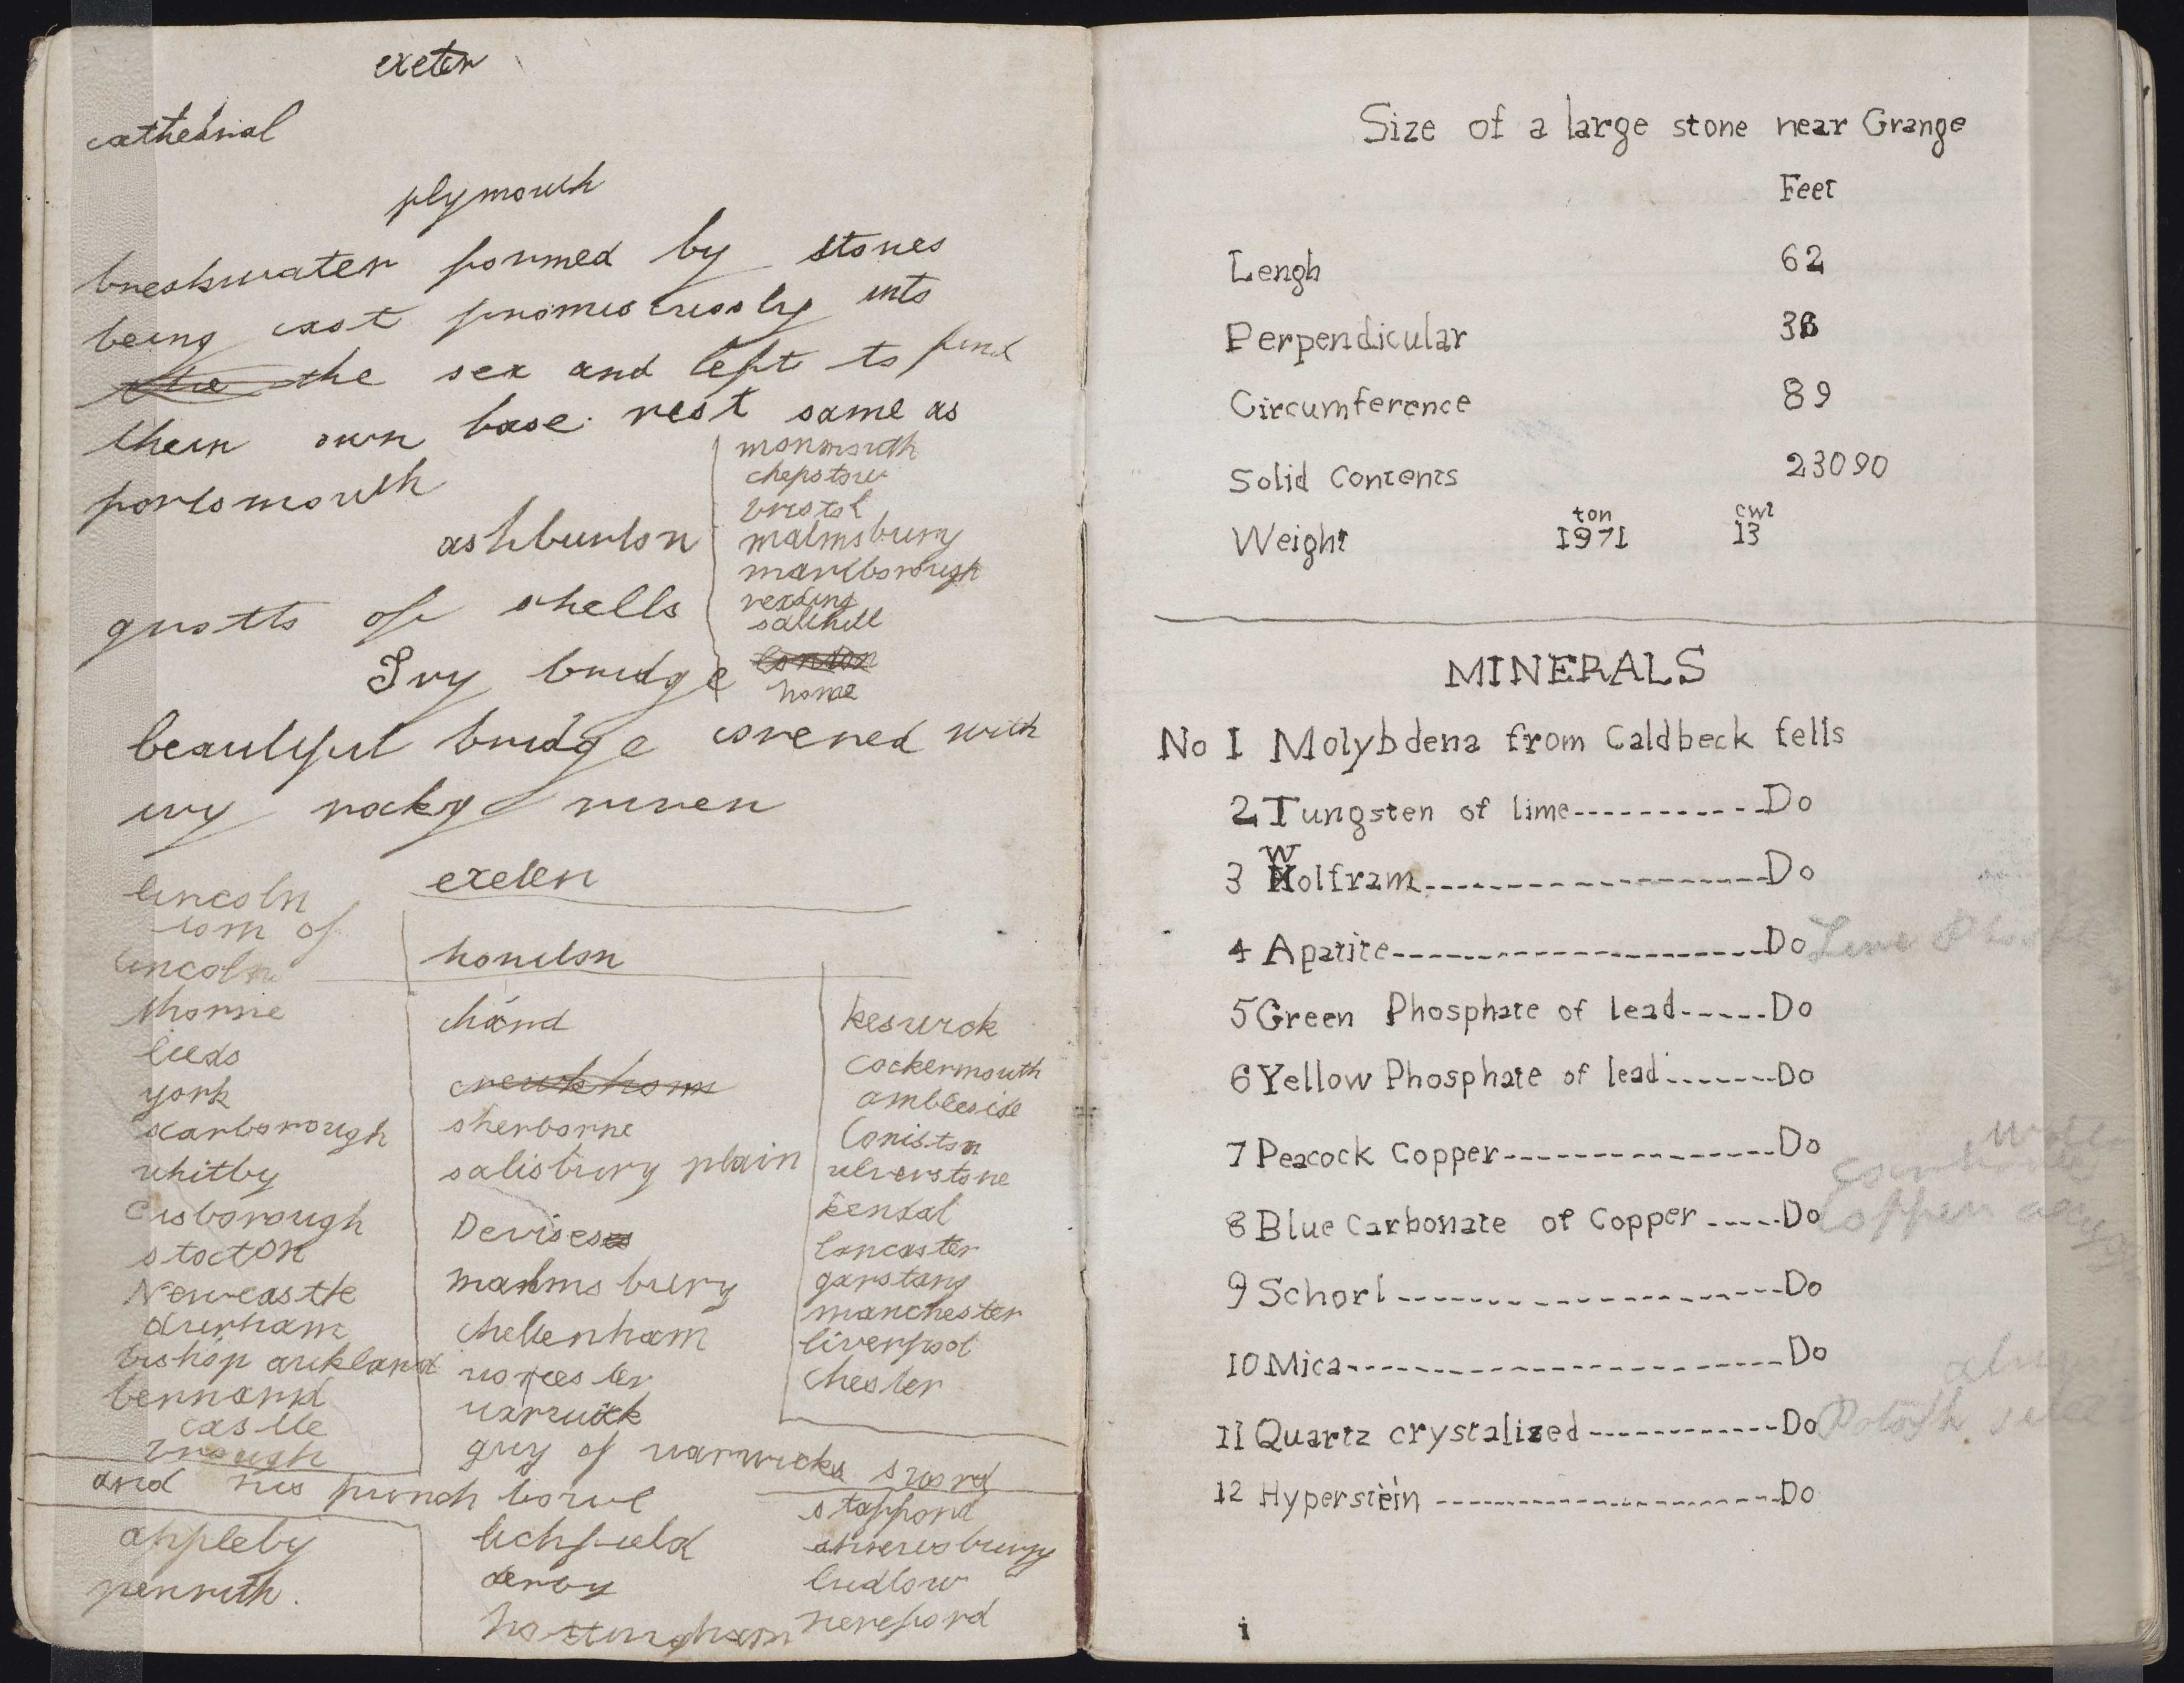 exeter
cathedral
plymouth
breakwater formed by stones
being cast promiscuosly into
the the sea and left to find
their own base. rest same as
portsmouth
ashburton
grotto of shells
Ivy bridge
monmouth
chepstow
bristol
malmsbury
marlborough
reading
salthill
london
home
beautiful bridge covered with
ivy rocky river
exeter
honiton
lincoln
tom of
lincoln
thorne
leeds
york
scarborough
whitby
Gisborough
stocton
Newcastle
durham
bishop aukland
bernard
castle
brough
chard
crewkhorn
sherborne
salisbury plain
Devises
malmsbury
cheltenham
worcester
warwick
guy of warwicks sword
and his punch bowl
keswick
cockermouth
ambleside
Coniston
ulverstone
kendal
lancaster
garstang
manchester
liverpool
chester
appleby
penrith.
lichfield
derby
nottingham
stafford
shrewsbury
ludlow
hereford
Size of a large stone near Grange
Feet
Lengh 62
Perpendicular 36
Circumference 89
Solid Contents 23090
ton cwt
Weight 1971 13
MINERALS
No 1 Molybdena from Caldbeck fells
2 Tungsten of lime-----------Do
W
3 Wolfram-------------------Do
4 Apatite--------------------Do Lime
5 Green Phosphate of lead------Do
6 Yellow Phosphate of lead-------Do
7 Peacock Copper---------------Do
8 Blue Carbonate of Copper-----Do Copper
9 Schorl----------------------Do
10 Mica------------------------Do
11 Quartz crystalized------------Do Potash
12 Hyperstein--------------------Do
i